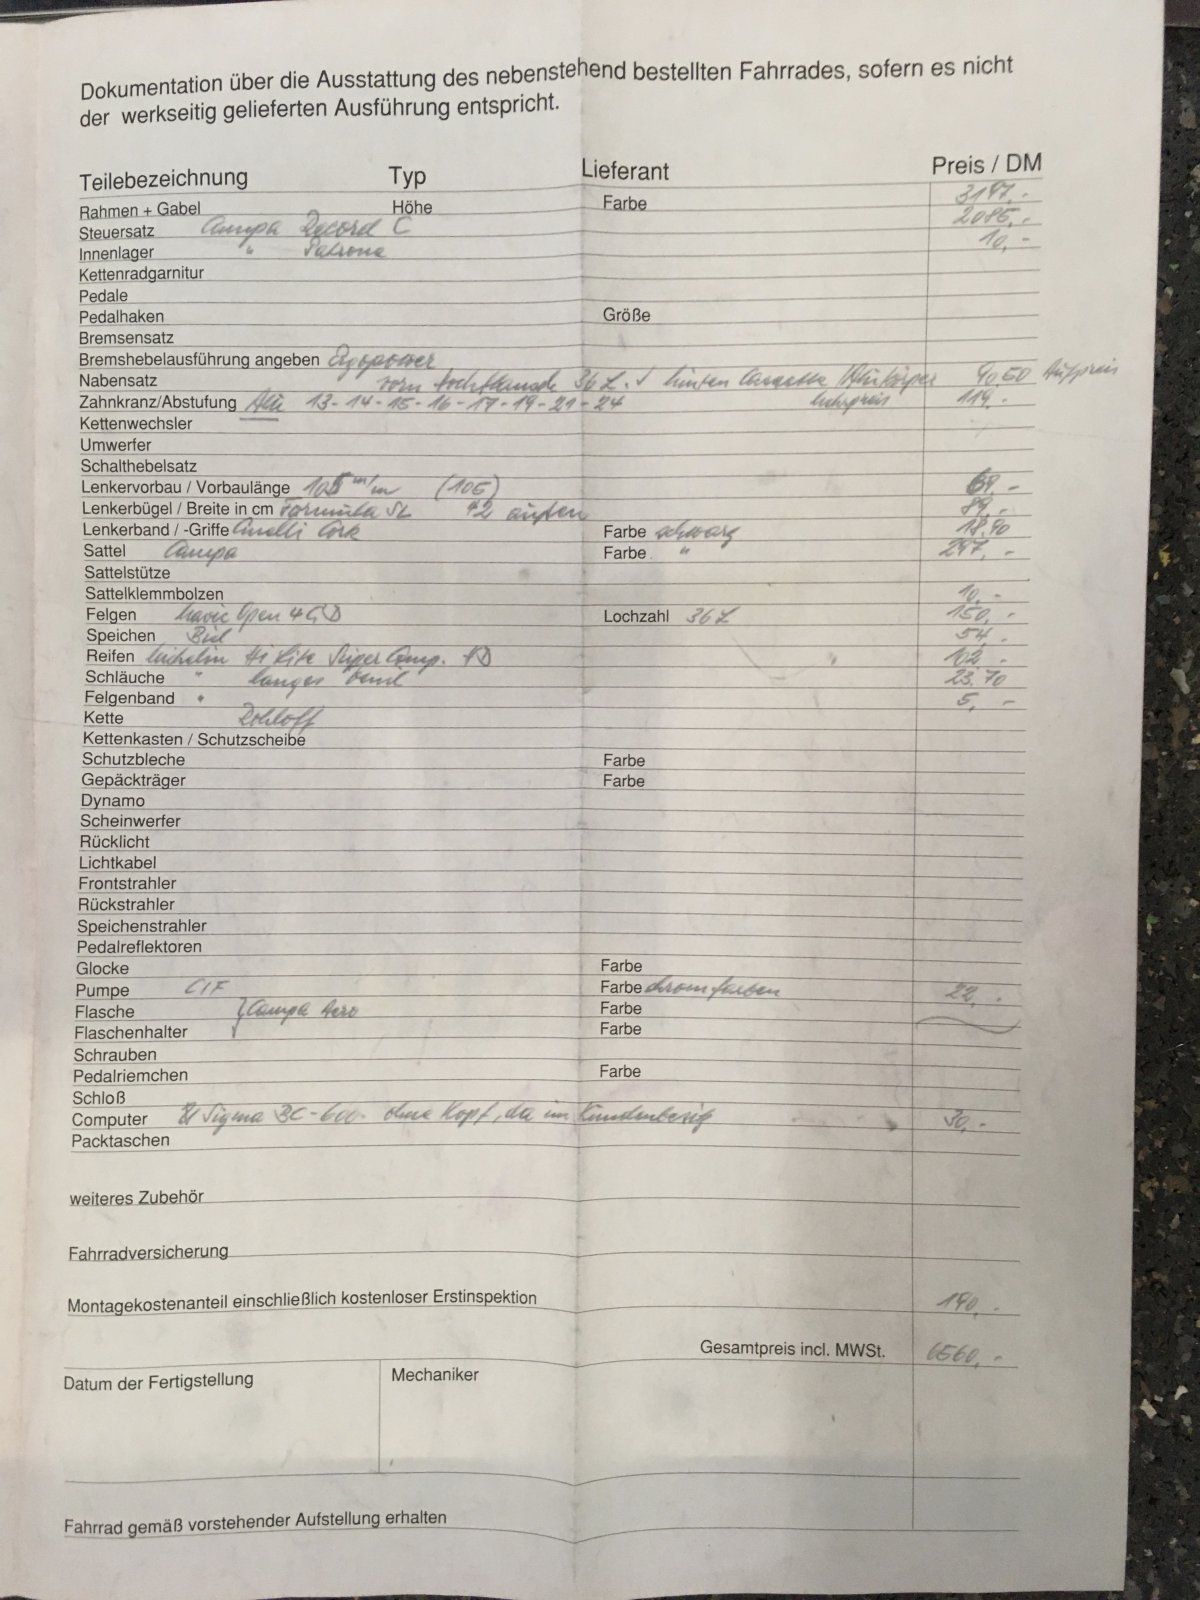 Dokumentation über die Ausstattung des nebenstehend bestellten Fahrrades, sofern es nicht
der werkseitig gelieferten Ausführung entspricht.
Teilebezeichnung Typ Lieferant Preis / DM
Rahmen + Gabel Höhe Farbe 3197,-
Steuersatz Campa Record C 2085,-
Innenlager " Patrone 10,-
Kettenradgarnitur
Pedale
Pedalhaken Größe
Bremsensatz
Bremshebelausführung angeben Ergopower
Nabensatz vorn Hochflansch 36 L. hinten Cassette Alukörper 40.50 Aufpreis
Zahnkranz/Abstufung Alu 13-14-15-16-17-19-21-24 Mehrpreis 119,-
Kettenwechsler
Umwerfer
Schalthebelsatz
Lenkervorbau / Vorbaulänge 105 m/m (105) 69,-
Lenkerbügel / Breite in cm Formula SL 42 außen 89,-
Lenkerband / -Griffe Cinelli Cork Farbe schwarz 18.90
Sattel Campa Farbe " 297,-
Sattelstütze
Sattelklemmbolzen 10,-
Felgen Mavic Open 4CD Lochzahl 36 L 150,-
Speichen 54,-
Reifen Michelin Hi Lite Super Comp. HD 102,-
Schläuche " langes Ventil 23.70
Felgenband " 5,-
Kette Rohloff
Kettenkasten / Schutzscheibe
Schutzbleche Farbe
Gepäckträger Farbe
Dynamo
Scheinwerfer
Rücklicht
Lichtkabel
Frontstrahler
Rückstrahler
Speichenstrahler
Pedalreflektoren
Glocke Farbe
Pumpe Farbe chromfarben 22,-
Flasche } Campa Aero Farbe
Flaschenhalter Farbe
Schrauben
Pedalriemchen Farbe
Schloß
Computer Sigma BC-600 ohne Kopf, da im Kundenbesitz 30,-
Packtaschen
weiteres Zubehör
Fahrradversicherung
Montagekostenanteil einschließlich kostenloser Erstinspektion 190,-
Gesamtpreis incl. MWSt. 6560,-
Datum der Fertigstellung Mechaniker
Fahrrad gemäß vorstehender Aufstellung erhalten